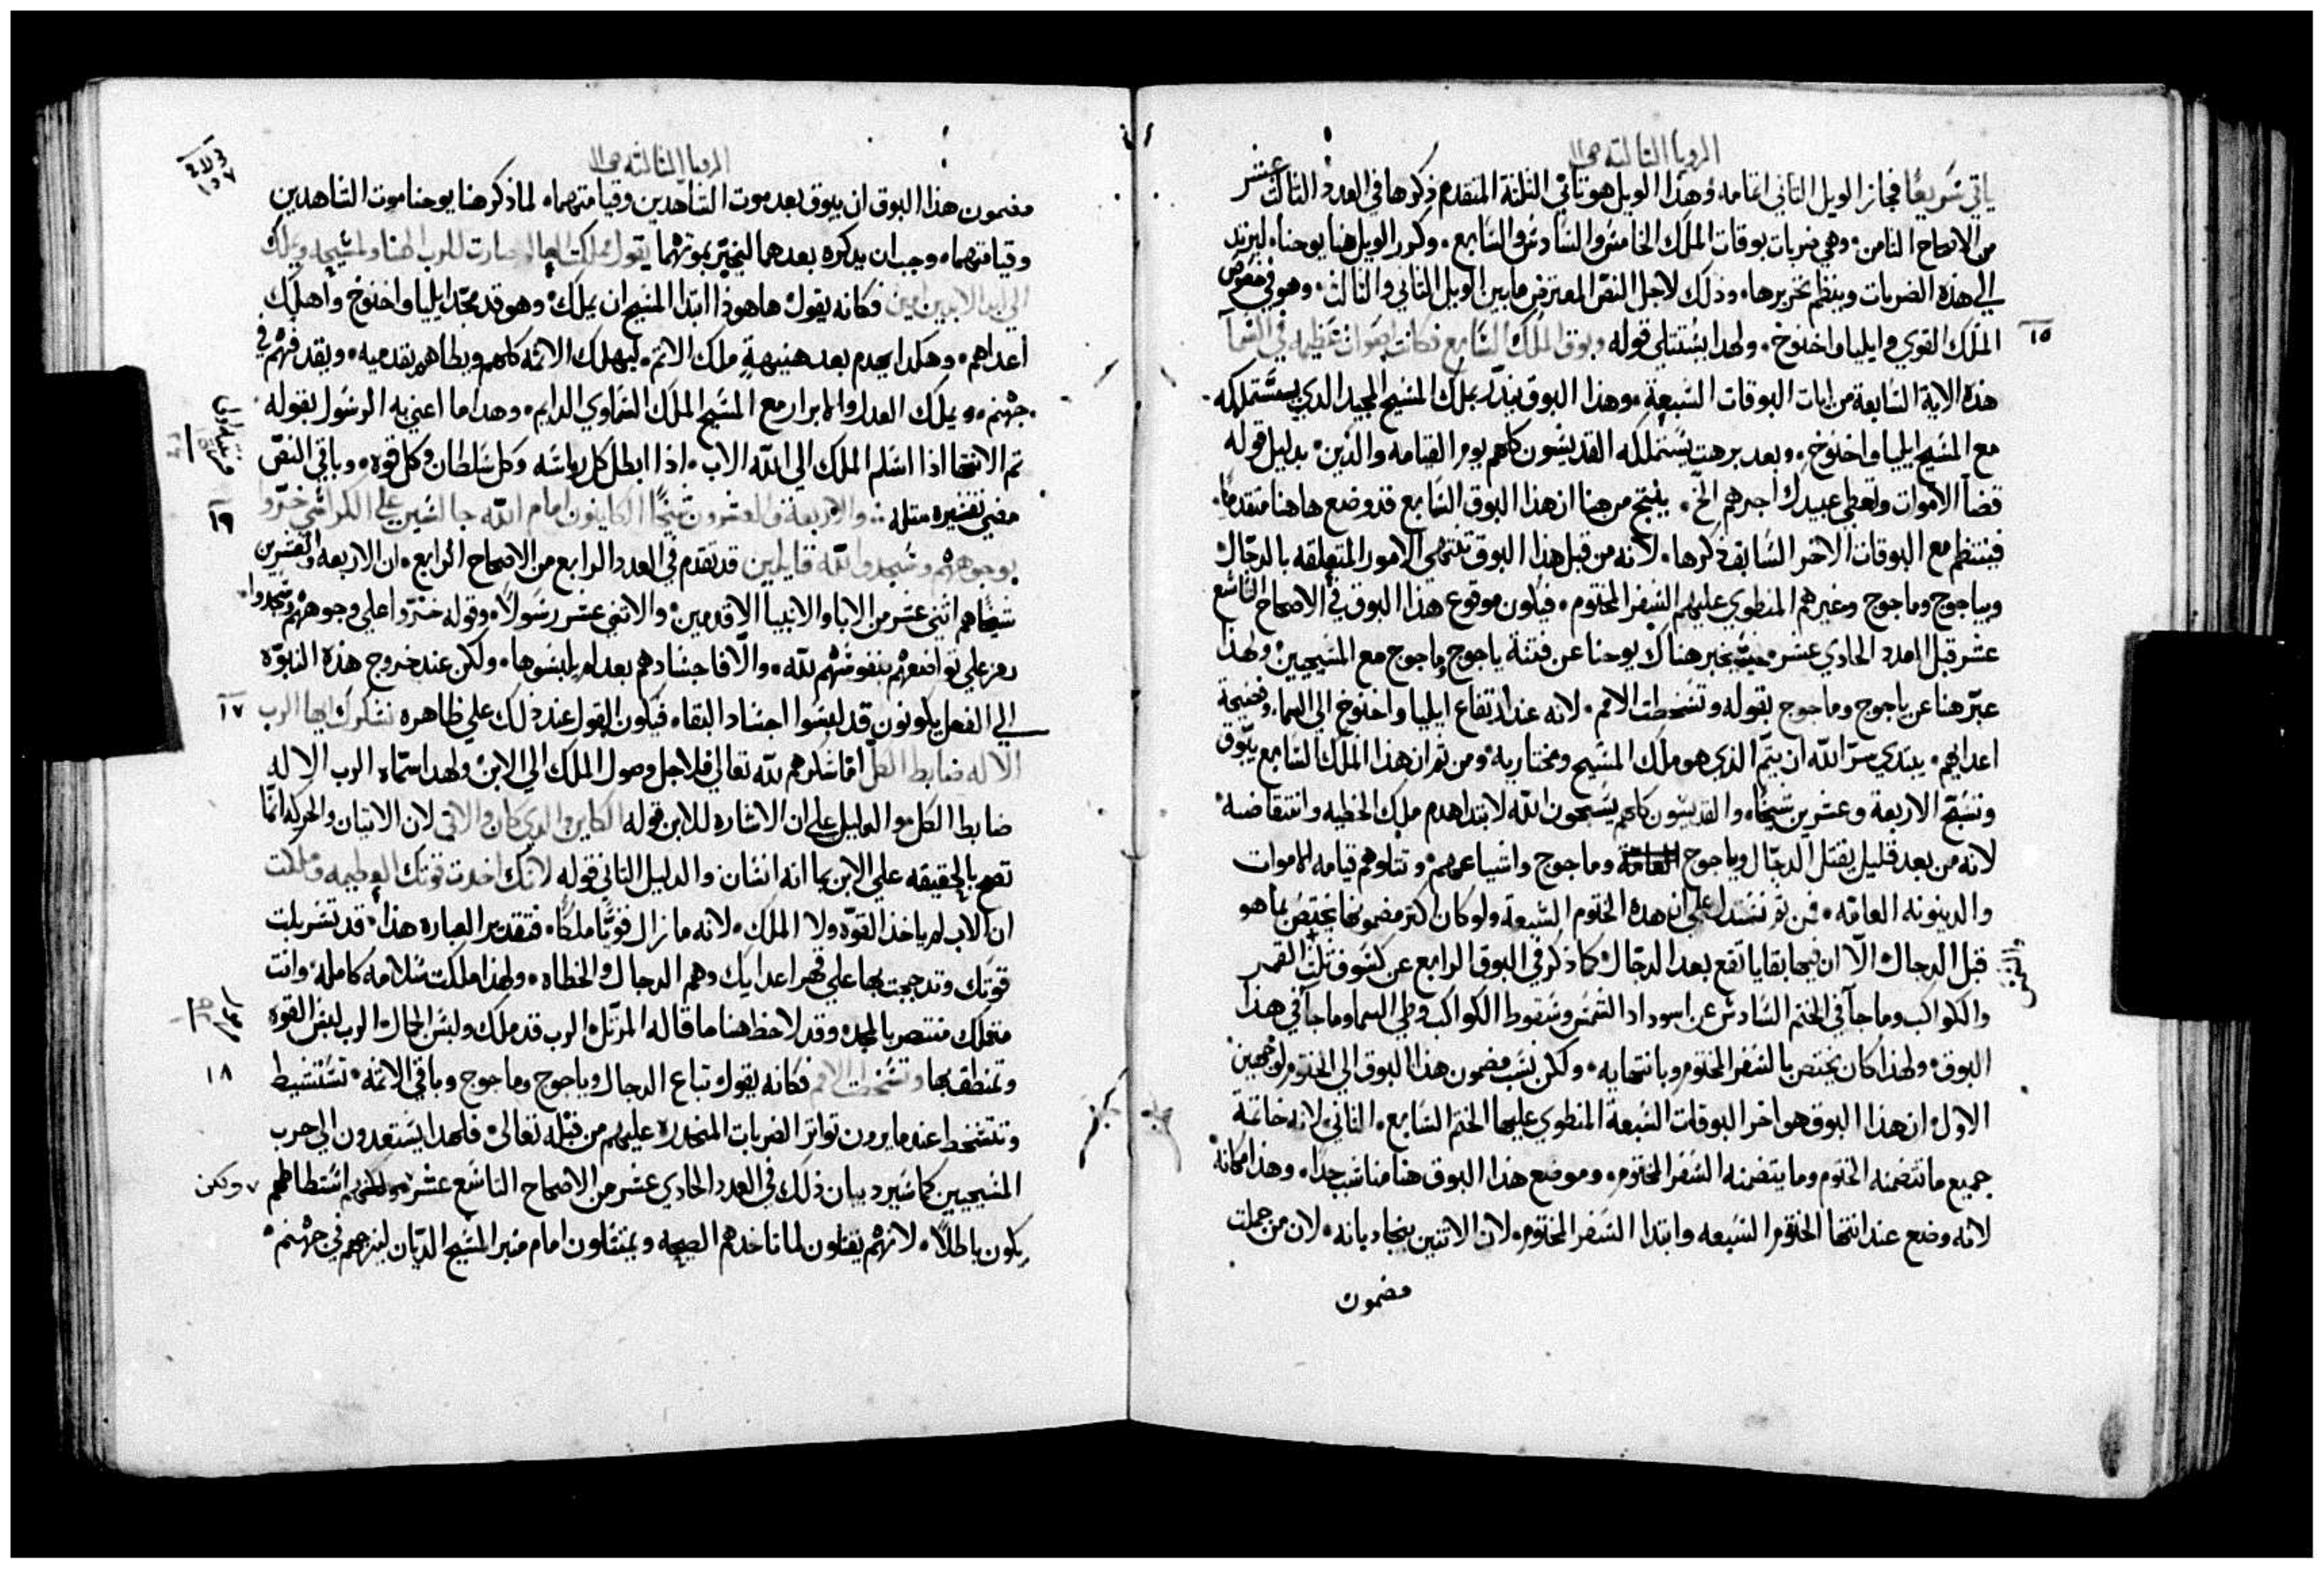 الرويا الثالثه ص ١١
ياتي سريعًا فجاز الويل الثاني اتمامه وهذا الويل هو ثاني الثلثة المتقدم ذكرها في العدد الثالث عشر
من الاصحاح الثامن وهي ضربات بوقات الملك الخامس والسادس والسابع وكرر الويل هنا يوحنا ليرتد
الي هذه الضربات وينظم تحريرها وذلك لاجل النص المعترض ما بين الويل الثاني والثالث وهو في معرض
١٥ الملك القوي وايليا واخنوخ ولهدا يستتلي قوله وبوق الملك السابع فكانت اصوات عظيمه في السما
هذه الاية السابعة من ايات البوقات السبعة وهذا البوق ينذر بملك المسيح المجيد الدي يستملكه
مع المسيح ايليا واخنوخ وبعد برهت يستملكه القديسون كلهم يوم القيامه والدين بدليل قوله
قضا الاموات وتعطي عبيدك اجرهم الخ ينتج من هنا ان هذا البوق السابع قد وضع هاهنا متقدمًا
فينتظم مع البوقات الاخر السابق ذكرها لانه من قبل هذا البوق تنتهي الامور المتعلقه بالدجال
وبياجوج وماجوج وغيرهم المنطوي عليهم السفر المختوم فيكون موقوع هذا البوق في الاصحاح التاسع
عشر قبل العدد الحادي عشر حيث يخبر هناك يوحنا عن فتنة ياجوج وماجوج مع المسيحيين ولهذا
عبّر هنا عن ياجوج وماجوج بقوله وتسخطت الامم لانه عند ارتفاع ايليا واخنوخ الي السما وفضيحة
اعدايهم يبتدي سرّ الله ان يتمّ الذي هو ملك المسيح ومختاريه ومن ثم ان هذا الملك السابع يبّوق
وتسبّح الاربعة وعشرين شيخًا والقديسون كلهم يسبحون الله لابتدا هدم ملك الخطيه وانتقاضه
لانه من بعد قليل يقتل الدجّال وياجوج وماجوج واشياعهم وتتلوهم قيامه الاموات
والدينونه العامّه فمن ثم نستدل علي ان هذه الختوم السبعة ولو كان اكثر مضمونها يختص بما هو
قبل الدجال الّا ان فيها بقايا تقع بعد الدجّال كما ذكر في البوق الرابع عن كسوف ثلث القمر
والكواكب وما جا في الختم السادس عن اسوداد الشمس وسقوط الكواكب وطي السما وما جا في هذا
البوق ولهذا كان يختص بالسفر المختوم وبانتهايه ولكن نسب مضمون هذا البوق الي الختوم لوجهين
الاول ان هذا البوق هو اخر البوقات السبعة المنطوي عليها الختم السابع الثاني لانه خاتمة
جميع ما تتضمنه الختوم وما يتضمنه السفر المختوم وموضع هذا البوق هنا مناسب جدًا وهذا مكانه
لانه وضع عند انتها الختوم السبعه وابتدا السفر المختوم لان الاثنين يتجاذبانه لان من جملت
مضمون
الرويا الثالثه ص ١١
مضمون هذا البوق ان يبوق بعد موت الشاهدين وقيامتهما لما ذكر هنا يوحنا موت الشاهدين
وقيامتهما وجب ان يذكره بعدهما ليخبّر بموتهما يقول مملكت العالم صارت للرب الهنا ولمسيحه ويملك
الي ابد الابدين امين فكانه يقول ها هوذا ابتدا المسيح ان يملك وهو قد مجّد ايليا واخنوخ واهلك
اعداهم وهكدا يهدم بعد هنيهةٍ ملك الاثم ليهلك الاثمه كلهم ويطاهم بقدميه ويقدفهم في
جهنم ويملك العدل والابرار مع المسيح الملك السماوي الدايم وهدا ما اعني به الرسول بقوله
تم الانتها اذا اسلم الملك الي الله الاب اذا ابطل كل رياسه وكل سلطان وكل قوه وباقي النصّ
١٦ مضي تفسيره مثله والاربعة والعشرون شيخًا الكاينون امام الله جالسين علي الكراسي خرّوا
بوجوههم وسجدوا لله قايلين قد تقدم في العدد الرابع من الاصحاح الرابع ان الاربعه والعشرين
شيخًا هم اثني عشر من الابا والانبيا الاقدمين والاثني عشر رسولًا وقوله خرّوا علي وجوههم وسجدوا
رمز علي تواضعهم بنفوسهم لله والّا فاجسادهم بعد لم يلبسوها ولكن عند خروج هذه النبوّه
١٧ الي الفعل يكونون قد لبسوا اجساد البقا فيكون القول عند ذلك علي ظاهره نشكرك ايها الرب
الاله ضابط الكل امّا شكرهم لله تعالي فلاجل وصول الملك الي الابن ولهدا سمّاه الرب الاله
ضابط الكل والدليل علي ان الاشاره للابن قوله الكاين والدي كان والاتي لان الاتيان والحركه انمّا
تصح بالحقيقه علي الابن بما انه انسان والدليل الثاني قوله لانك اخدت قوتك العظيمه وملكت
ان الاب لم ياخذ القوّه ولا الملك لانه ما زال قويًّا ملكًا فتقدير العباره هذا قد تسربلت
قوتك وتدججت بها علي قهر اعدايك وهم الدجال والخطاه ولهذا ملكت سلامه كامله وانت
متملك منتصر بالمجد وقد لاحظ هنا ما قاله المرتّل الرب قد ملك ولبس الجمال الرب لبس القوه
١٨ وتمنطق بها وتسخطت الامم فكانه يقول تباع الدجال وياجوج وماجوج وباقي الاثمه تستشيط
وتتسخط عند ما يرون تواتر الضربات المنحدره عليهم من قبله تعالي فلهدا يستعدون الي حرب
المسيحيين كما سيرد بيان ذلك في العدد الحادي عشر من الاصحاح التاسع عشر استطاطهم ولكن
يكون باطلًا لانهم يقتلون لما تاخدهم الصيحه ويمتثلون امام منبر المسيح الديّان ليزجهم في جهنم